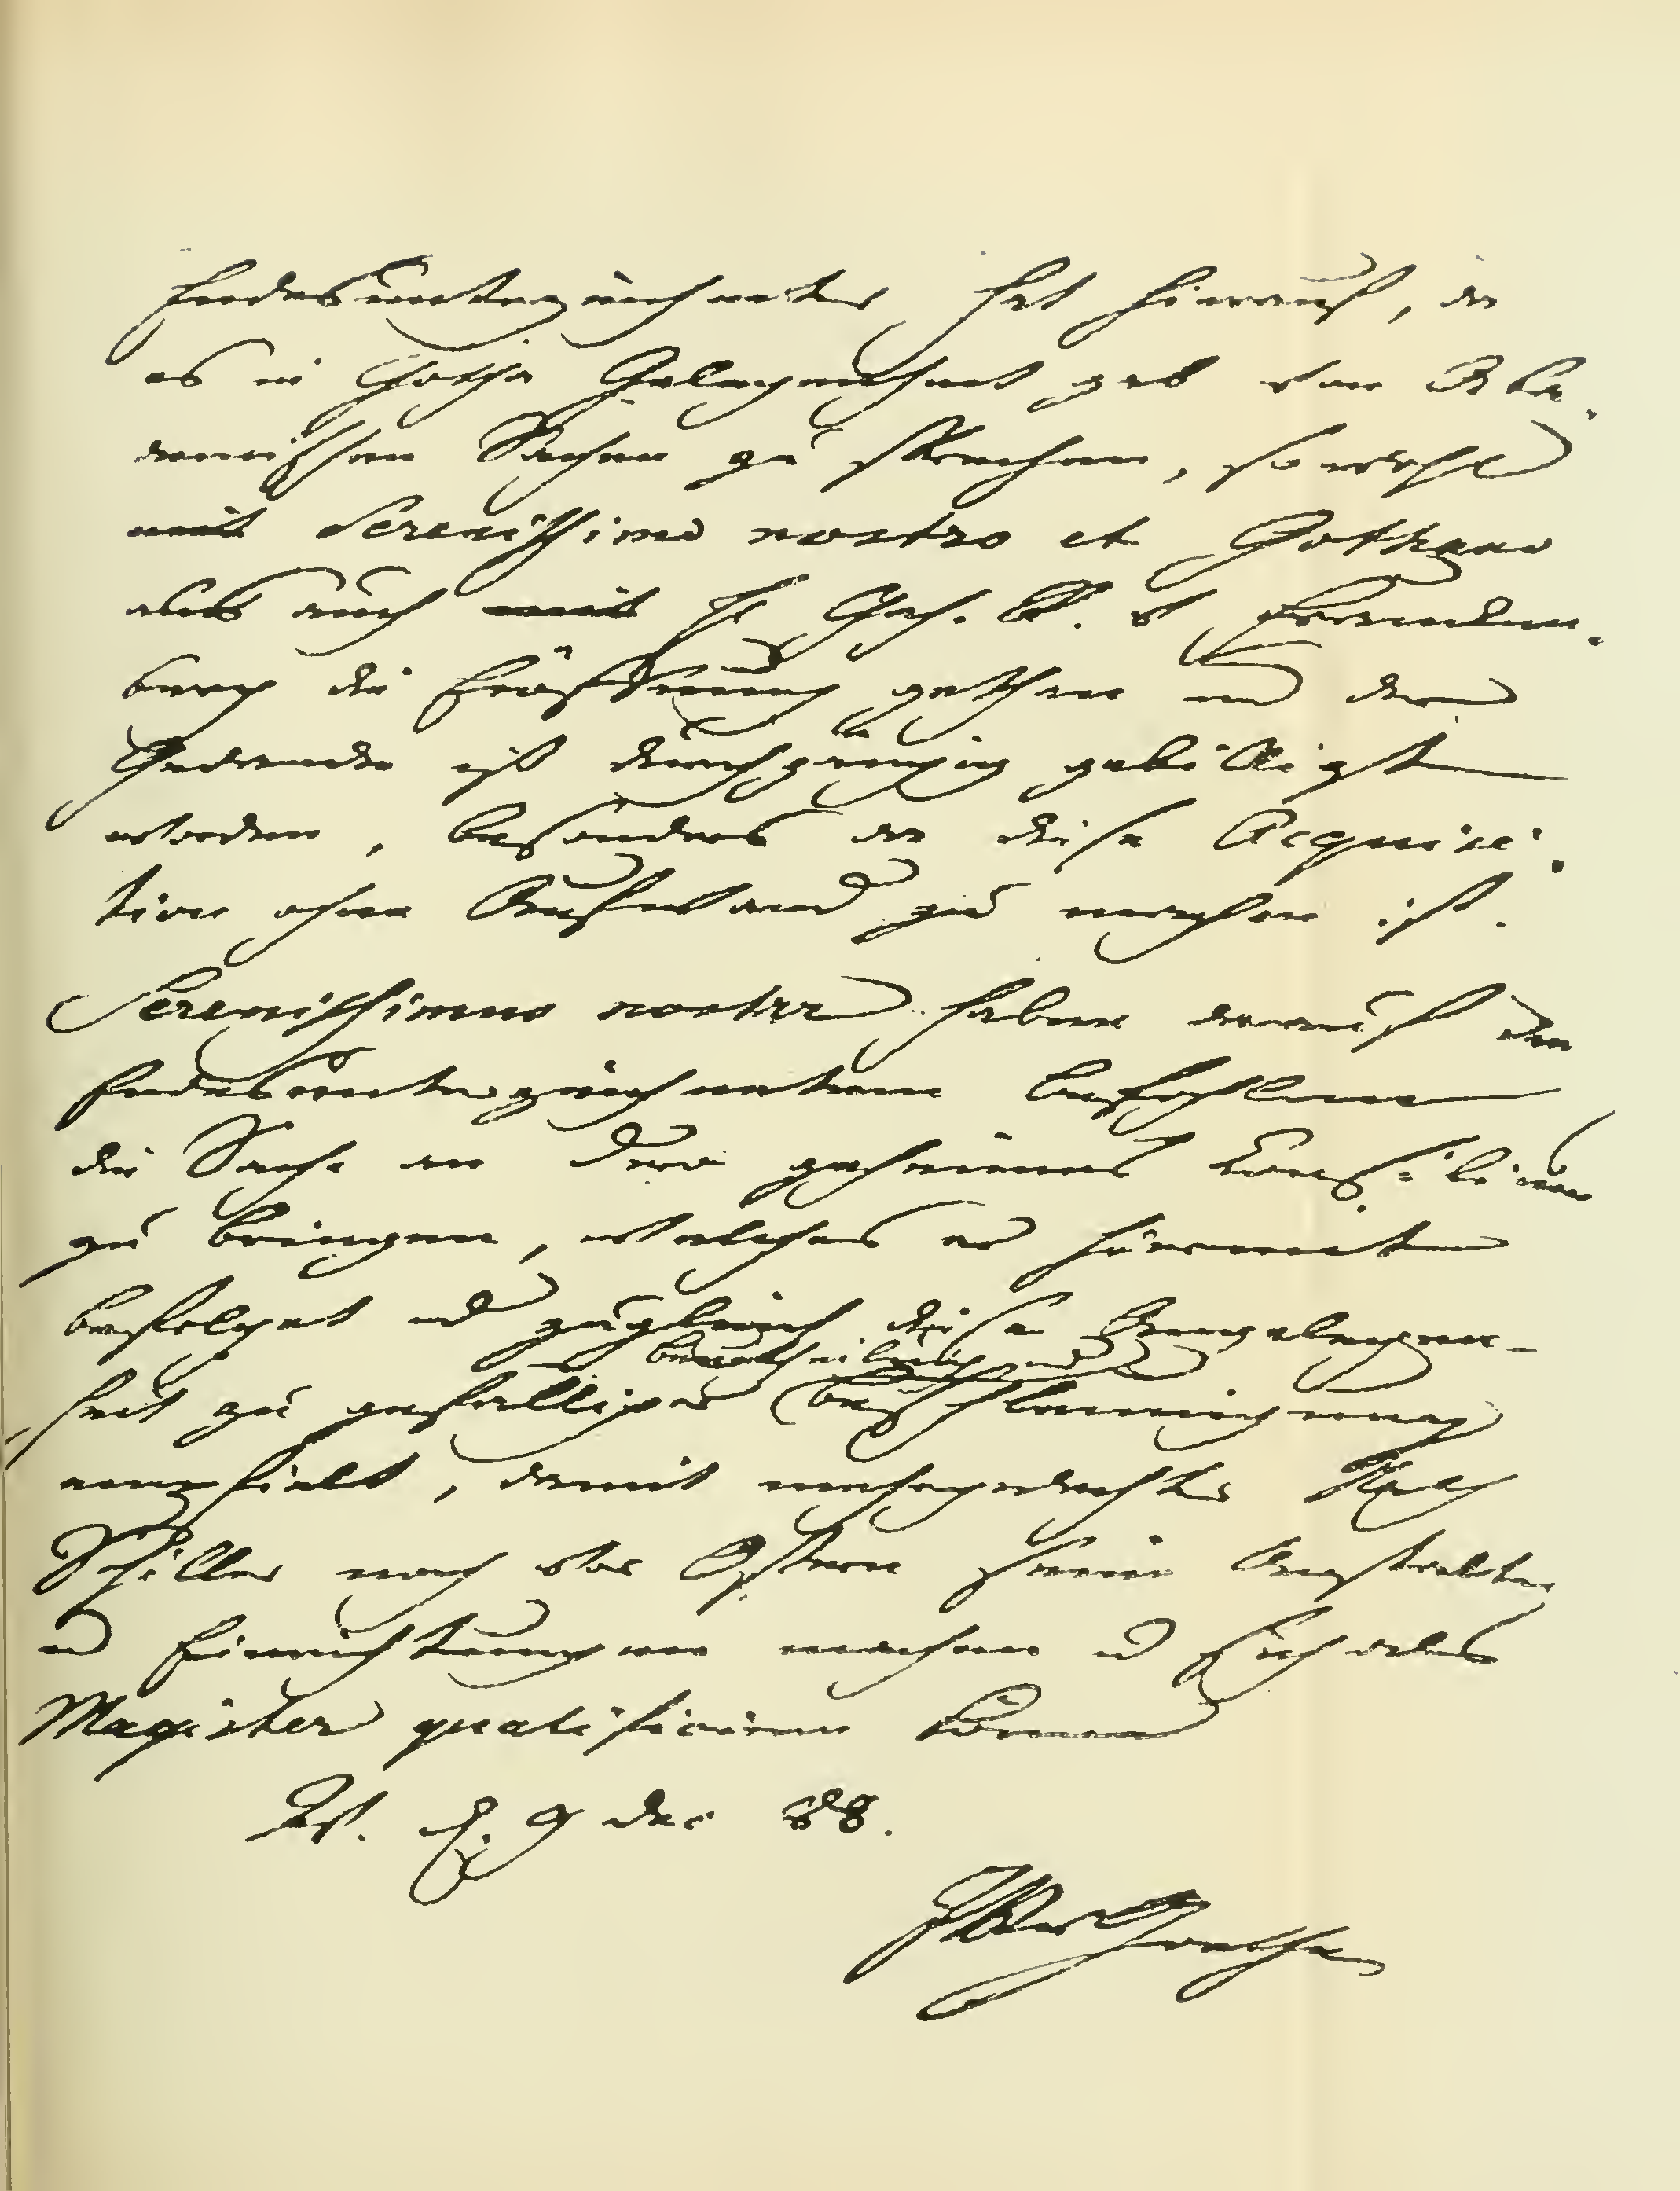 Endesunterzeichneter hat hierauf, da
es in Gotha Gelegenheit gab von Aka-
demischen Sachen zu sprechen, sowohl
mit Serenissimo nostro et Gothano
als auch mit H Geh. R. v Francken-
berg die Eröffnung gethan und der
Gedancke ist durchgängig gebilligt
worden, besonders da diese Acquisi-
tion ohne Aufwand zu machen ist.
Serenissimus noster haben darauf den
Endesunterzeichneten befohlen
die Sache an Dero geheimes Consilium
zu bringen, welches er hiermit
befolget und zugleich diese Angelegen-
heit zu gefälliger Beurtheilung und
Beschleunigung
empfielt, damit mehrgedachter Rath
Schiller noch vor Ostern seine Anstalten
und Einrichtungen machen und sich als
Magister qualificiren könne
W. d. 9 Dec 88.
JWvGoethe